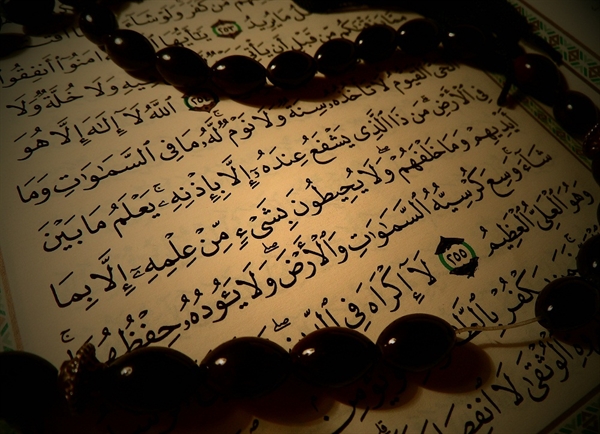 مَّن كَفَرَ وَلَوْ شَآءَ
مَا يُرِيدُ ٢٥٣ ءَامَنُوٓا۟ أَنفِقُوا۟
رَزَقْنَٰكُم مِّن قَبْلِ أَن يَأْتِىَ فِيهِ وَلَا خُلَّةٌ وَلَا
٢٥٤ ٱللَّهُ لَآ إِلَٰهَ إِلَّا هُوَ
ٱلْحَىُّ ٱلْقَيُّومُ لَا تَأْخُذُهُۥ سِنَةٌ وَلَا نَوْمٌ لَّهُۥ مَا فِى ٱلسَّمَٰوَٰتِ وَمَا
فِى ٱلْأَرْضِ مَن ذَا ٱلَّذِى يَشْفَعُ عِندَهُۥٓ إِلَّا بِإِذْنِهِۦ يَعْلَمُ مَا بَيْنَ
أَيْدِيهِمْ وَمَا خَلْفَهُمْ وَلَا يُحِيطُونَ بِشَىْءٍ مِّنْ عِلْمِهِۦٓ إِلَّا بِمَا
شَآءَ وَسِعَ كُرْسِيُّهُ ٱلسَّمَٰوَٰتِ وَٱلْأَرْضَ وَلَا يَـُٔودُهُۥ حِفْظُهُمَا
وَهُوَ ٱلْعَلِىُّ ٱلْعَظِيمُ ٢٥٥ لَآ إِكْرَاهَ فِى
يَكْفُرْ
ٱلْوُثْقَىٰ لَا ٱنفِصَامَ